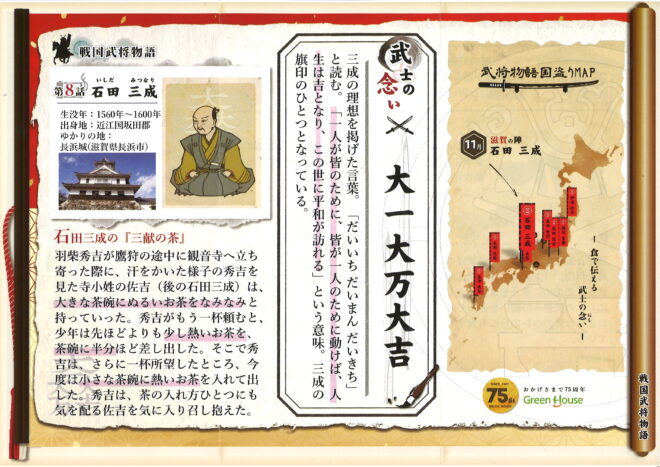 戦国武将物語
第8話
いしだ みつなり
石田 三成
生没年：1560年～1600年
出身地：近江国坂田郡
ゆかりの地：
長浜城(滋賀県長浜市)
石田三成の『三献の茶』
羽柴秀吉が鷹狩の途中に観音寺へ立ち
寄った際に、汗をかいた様子の秀吉を
見た寺小姓の佐吉（後の石田三成）は、
大きな茶碗にぬるいお茶をなみなみと
持っていった。秀吉がもう一杯頼むと、
少年は先ほどよりも少し熱いお茶を、
茶碗に半分ほど差し出した。そこで秀
吉は、さらに一杯所望したところ、今
度は小さな茶碗に熱いお茶を入れて出
した。秀吉は、茶の入れ方ひとつにも
気を配る佐吉を気に入り召し抱えた。
武士の念い
大一大万大吉
三成の理想を掲げた言葉。「だいいち だいまん だいきち」
と読む。「一人が皆のために、皆が一人のために動けば、人
生は吉となり、この世に平和が訪れる」という意味。三成の
旗印のひとつとなっている。
武将物語国盗りMAP
11月
滋賀の陣
石田 三成
石田三成
ー食で伝える
武士の念いー
SINCE 1947
75th
おかげさまで75周年
Green House
戦国武将物語